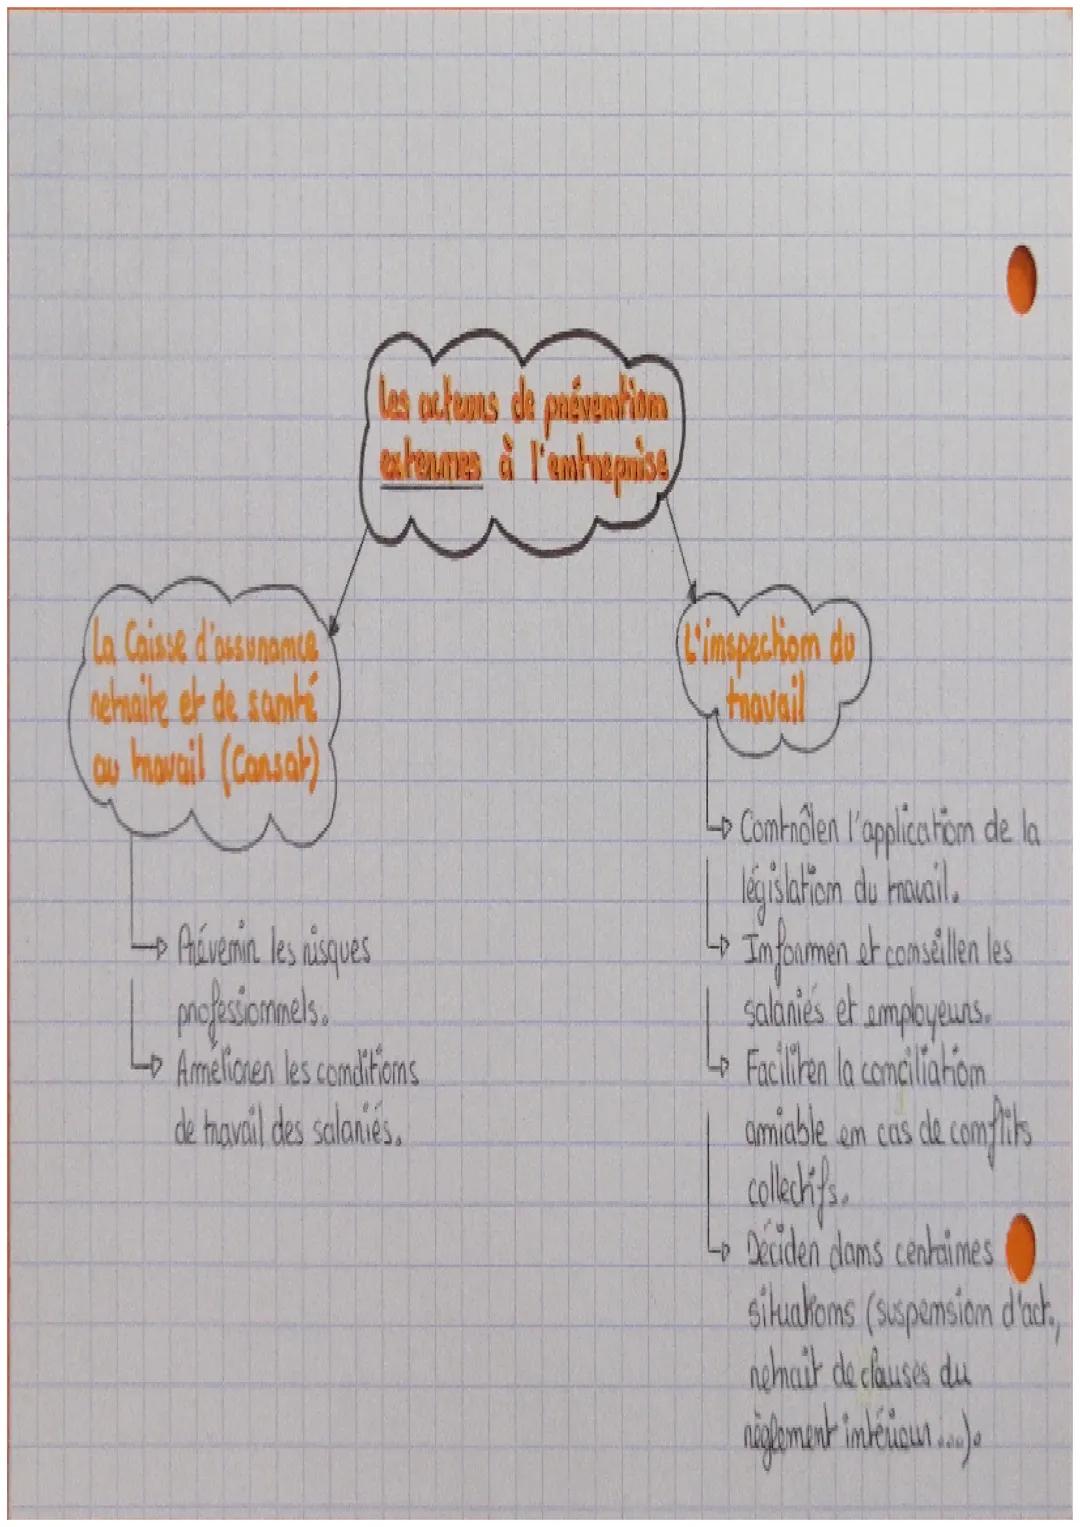 Les acteurs de prévention
externes à l'entreprise
La Caisse d'assurance
retraite et de santé
au travail (Carsat)
→ Prévenir les risques
professionnels.
→ Améliorer les conditions
de travail des salariés.
L'inspection du
travail
→ Contrôler l'application de la
législation du travail.
→ Informer et conseiller les
salariés et employeurs.
→ Faciliter la conciliation
amiable en cas de conflits
collectifs.
→ Décider dans certaines
situations (suspension d'act.,
retrait de clauses du
règlement intérieur...).